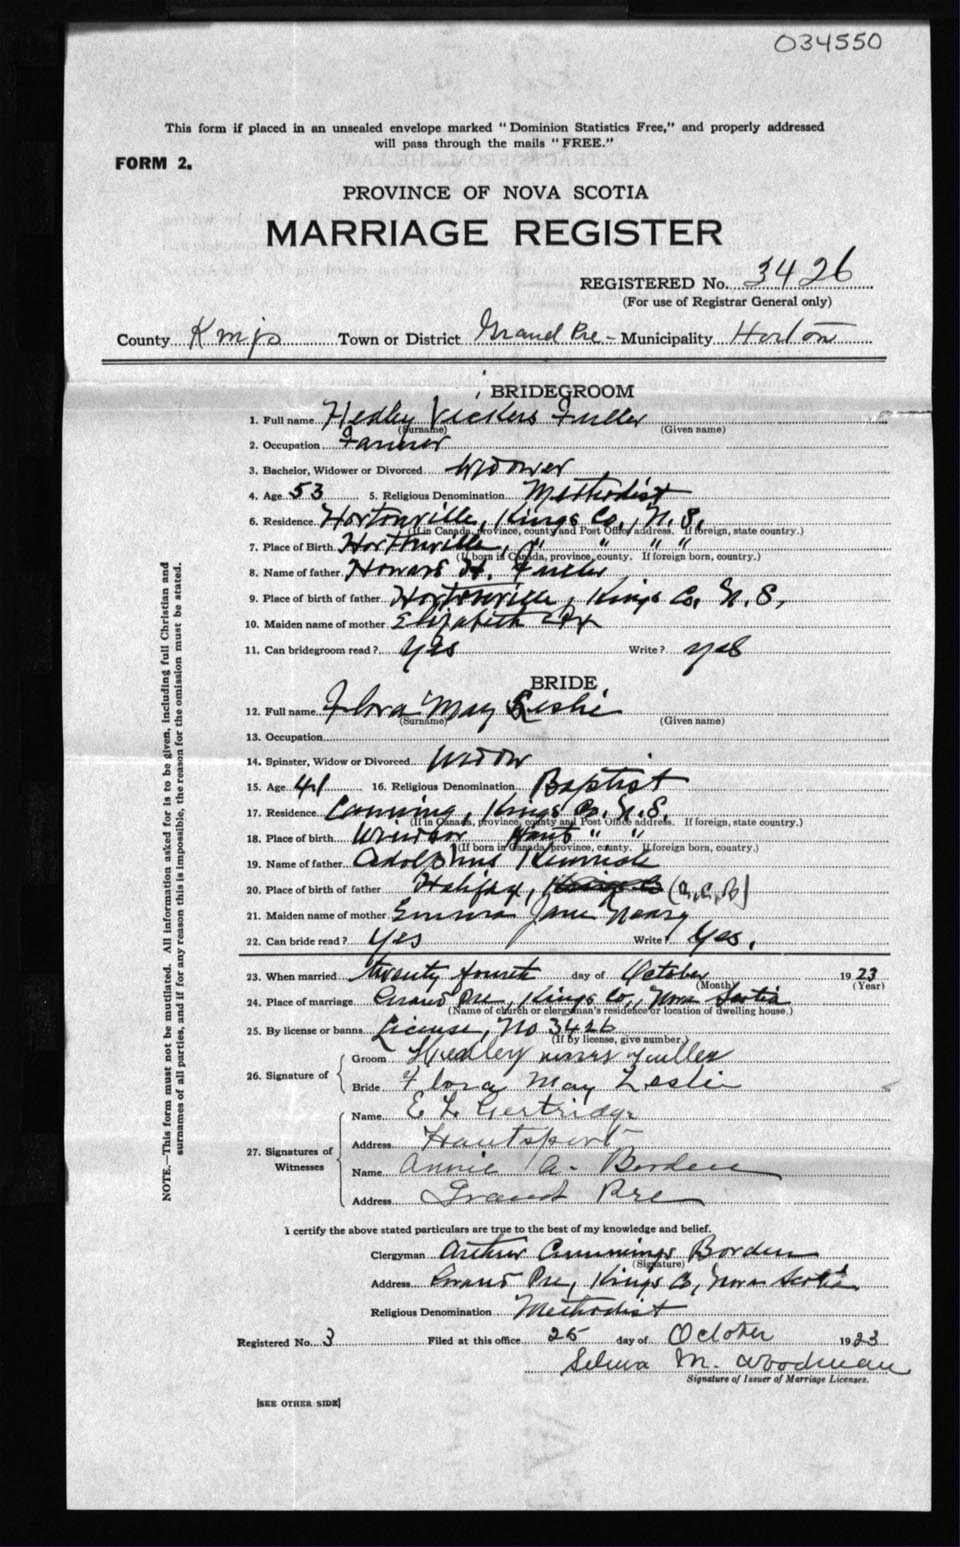 034550
This form if placed in an unsealed envelope marked "Dominion Statistics Free," and properly addressed
will pass through the mails "FREE."
FORM 2.
PROVINCE OF NOVA SCOTIA
MARRIAGE REGISTER
REGISTERED No. 3426
(For use of Registrar General only)
County Kings Town or District Grand Pre - Municipality Horton
BRIDEGROOM
1. Full name Hedley Vickers Fuller
(Surname) (Given name)
2. Occupation Farmer
3. Bachelor, Widower or Divorced Widower
4. Age 53 5. Religious Denomination Methodist
6. Residence Hortonville, Kings Co., N.S.
(If in Canada, province, county and Post Office address. If foreign, state country.)
7. Place of Birth Hortonville, " " " "
(If born in Canada, province, county. If foreign born, country.)
8. Name of father Howard H. Fuller
9. Place of birth of father Hortonville, Kings Co. N.S.
10. Maiden name of mother Elizabeth
11. Can bridegroom read? Yes Write? yes
BRIDE
12. Full name Flora May Leslie
(Surname) (Given name)
13. Occupation
14. Spinster, Widow or Divorced Widow
15. Age 41 16. Religious Denomination Baptist
17. Residence Canning, Kings Co. N.S.
(If in Canada, province, county and Post Office address. If foreign, state country.)
18. Place of birth Windsor Hants " "
(If born in Canada, province, county. If foreign born, country.)
19. Name of father Adolphus
20. Place of birth of father Halifax,
21. Maiden name of mother Emma Jane
22. Can bride read? Yes Write? Yes.
23. When married twenty fourth day of October 1923
(Month) (Year)
24. Place of marriage Grand Pre, Kings Co., Nova Scotia
(Name of church or clergyman's residence or location of dwelling house.)
25. By license or banns License, No 3426
(If by license, give number.)
26. Signature of Groom Hedley Fuller
Bride Flora May Leslie
27. Signatures of Witnesses Name E L Gertridge
Address Hantsport
Name Annie A. Borden
Address Grand Pre
I certify the above stated particulars are true to the best of my knowledge and belief.
Clergyman Arthur Cummings Borden
(Signature)
Address Grand Pre, Kings Co, Nova Scotia
Religious Denomination Methodist
Registered No. 3 Filed at this office 25 day of October 1923
Selma M. Woodman
Signature of Issuer of Marriage Licenses.
[SEE OTHER SIDE]
NOTE.—This form must not be mutilated. All information asked for is to be given, including full Christian and
surnames of all parties, and if for any reason this is impossible, the reason for the omission must be stated.